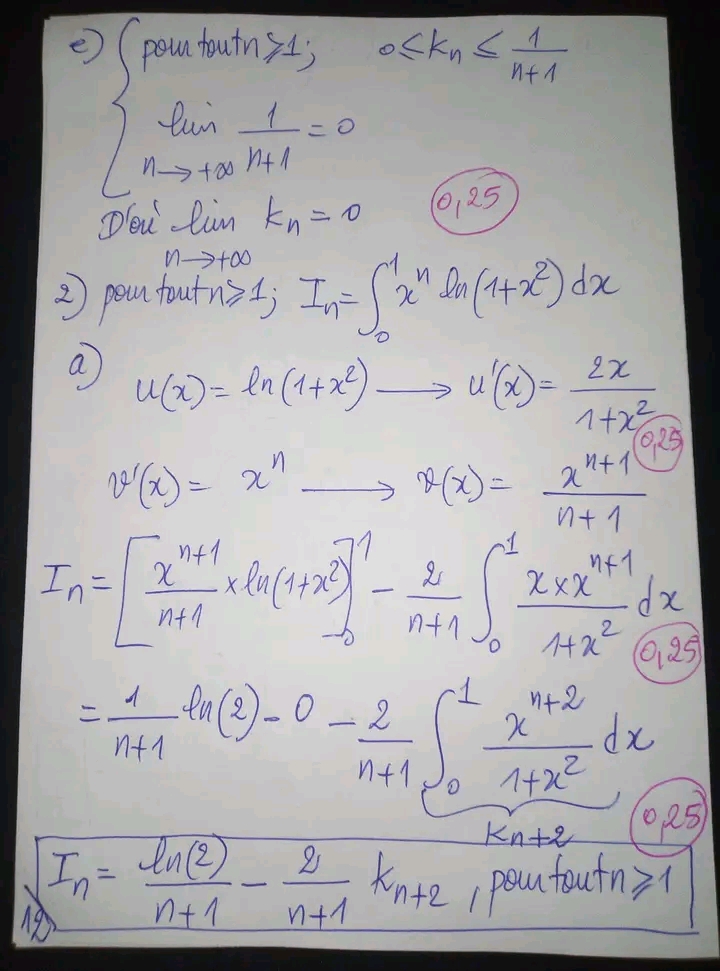 e) { pour tout n ⩾ 1 ; 0 ≤ Kn ≤ 1/(n+1)
lim n→+∞ 1/(n+1) = 0
D'où lim n→+∞ Kn = 0
0,25
2) pour tout n ⩾ 1 ; In = ∫₀¹ xⁿ ln(1+x²) dx
a) u(x) = ln(1+x²) ⟶ u'(x) = 2x/(1+x²)
0,25
v'(x) = xⁿ ⟶ v(x) = xⁿ⁺¹/(n+1)
In = [xⁿ⁺¹/(n+1) × ln(1+x²)]₀¹ − 2/(n+1) ∫₀¹ (x × xⁿ⁺¹)/(1+x²) dx
0,25
= 1/(n+1) ln(2) − 0 − 2/(n+1) ∫₀¹ xⁿ⁺²/(1+x²) dx
Kn+2
0,25
In = ln(2)/(n+1) − 2/(n+1) Kn+2 , pour tout n ⩾ 1
12